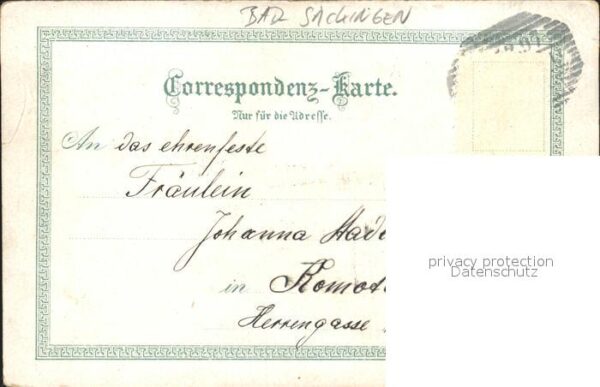 BAD SÄCKINGEN
Correspondenz-Karte.
Nur für die Adresse.
An das ehrenfeste
Fräulein
Johanna
in
Herrengasse
privacy protection
Datenschutz